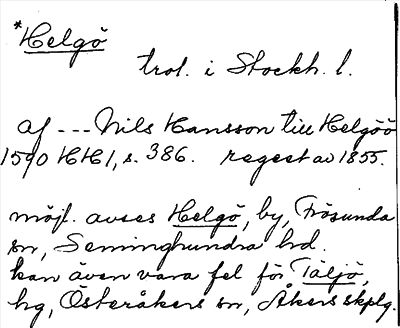 *Helgö
trol. i Stockh. l.
af --- Nils Hansson till Helgöö
1590 HH1, s. 386. regest av 1855.
möjl. avses Helgö, by, Frösunda
sn, Seminghundra hd.
kan även vara fel för Täljö,
hg, Österåkers sn, Åkers skplg.